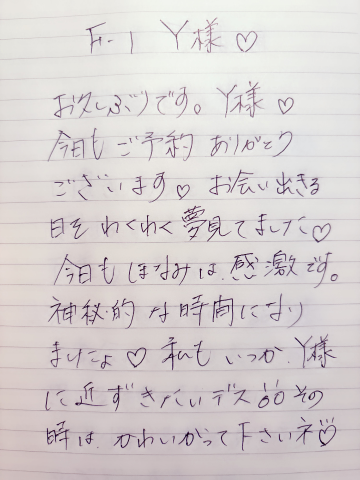 F-1 Y様♡
お久しぶりです。Y様♡
今日もご予約ありがとう
ございます♡ お会い出きる
日をわくわく夢見てました♡
今日もほなみは、感激です。
神秘的な時間になり
ましたょ♡ 私もいつか、Y様
に近ずきたいデス その
時は、かわいがって下さいネ♡